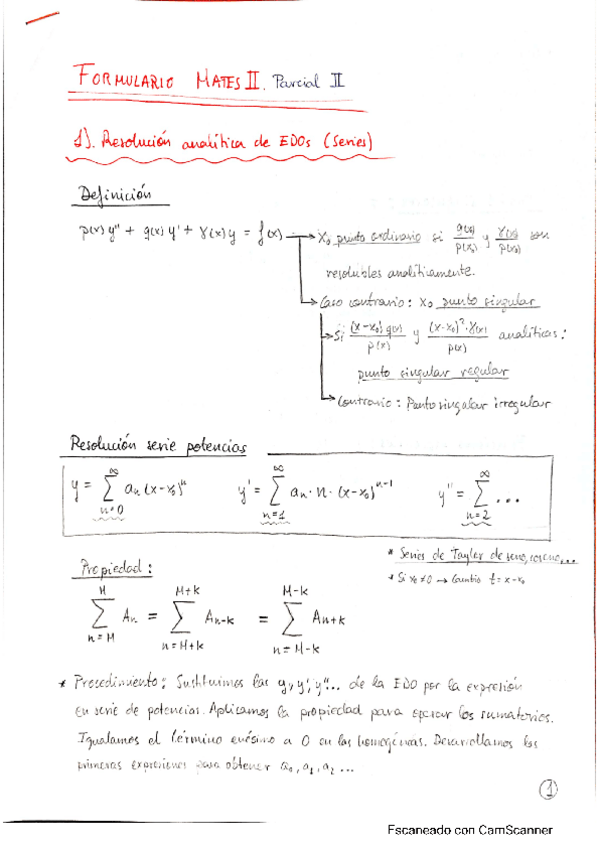 FORMULARIO MATES II. Parcial II
1). Resolución analítica de EDOs (Series)
Definición
p(x) y'' + q(x) y' + γ(x) y = f(x) → x₀ punto ordinario si q(x)/p(x) y γ(x)/p(x) son
resolubles analíticamente.
Caso contrario: x₀ punto singular
Si (x-x₀) q(x)/p(x) y (x-x₀)²·γ(x)/p(x) analíticas:
punto singular regular
Contrario: Punto singular irregular
Resolución serie potencias
y = ∑_{n=0}^{∞} aₙ (x-x₀)ⁿ y' = ∑_{n=1}^{∞} aₙ · n · (x-x₀)ⁿ⁻¹ y'' = ∑_{n=2}^{∞} ...
* Series de Taylor de seno, coseno,...
Propiedad:
* Si x₀≠0 → Cambio t = x-x₀
∑_{n=M}^{M} Aₙ = ∑_{n=M+k}^{M+k} Aₙ₋ₖ = ∑_{n=M-k}^{M-k} Aₙ₊ₖ
* Procedimiento: Sustituimos las y, y', y''... de la EDO por la expresión
en serie de potencias. Aplicamos la propiedad para operar los sumatorios.
Igualamos el término enésimo a 0 en las homogéneas. Desarrollamos las
primeras expresiones para obtener a₀, a₁, a₂ ...
1
Escaneado con CamScanner